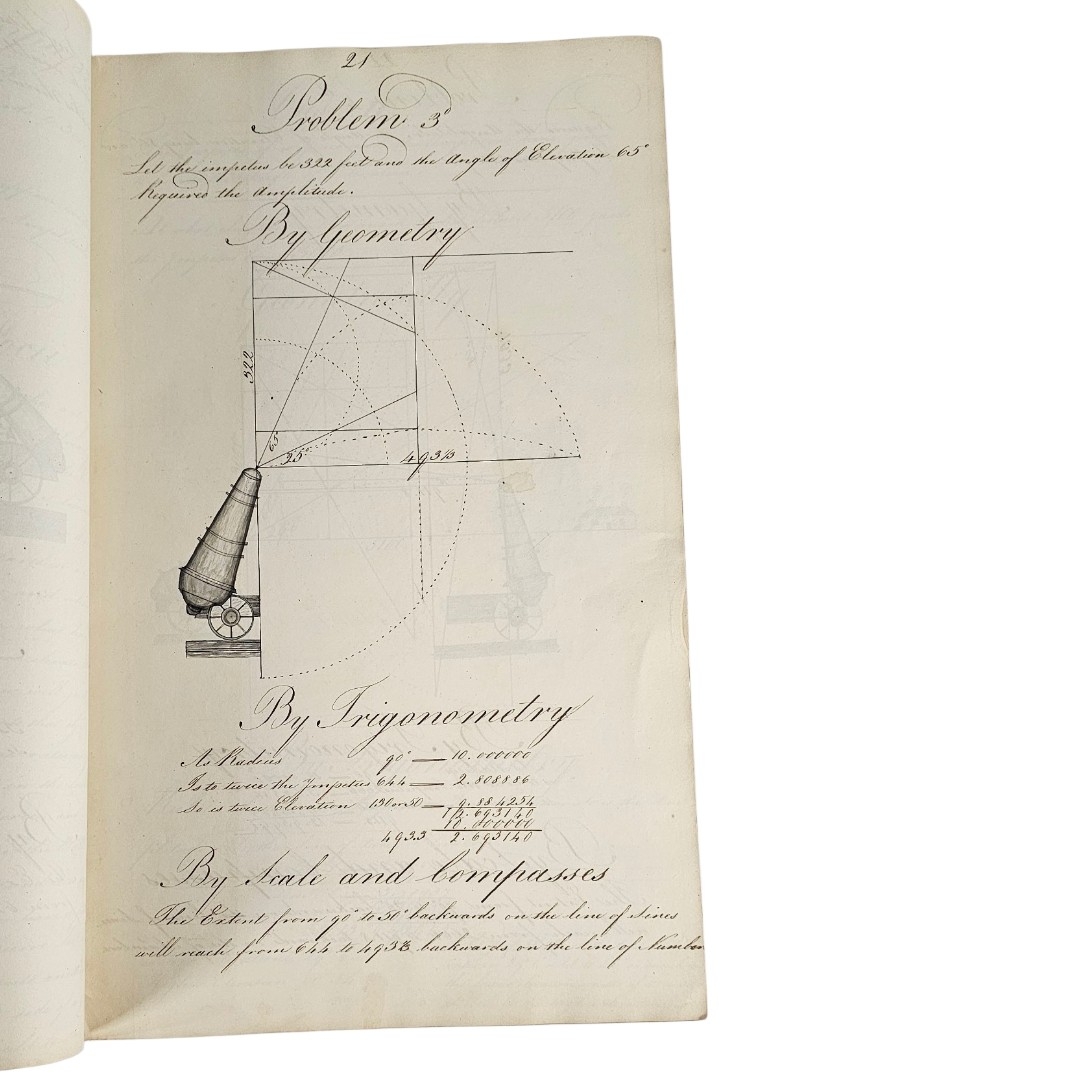 21
Problem 3d
Let the impetus be 322 feet and the Angle of Elevation 65°
Required the Amplitude.
By Geometry
322
65°
25°
493⅓
By Trigonometry
As Radius 90° — 10.000000
Is to twice the Impetus 644 — 2.808886
So is twice Elevation 130 or 50 — 9.884254
12.693140
10.000000
493.3 2.693140
By Scale and Compasses
The Extent from 90° to 50° backwards on the line of Sines
will reach from 644 to 493⅓ backwards on the line of Number